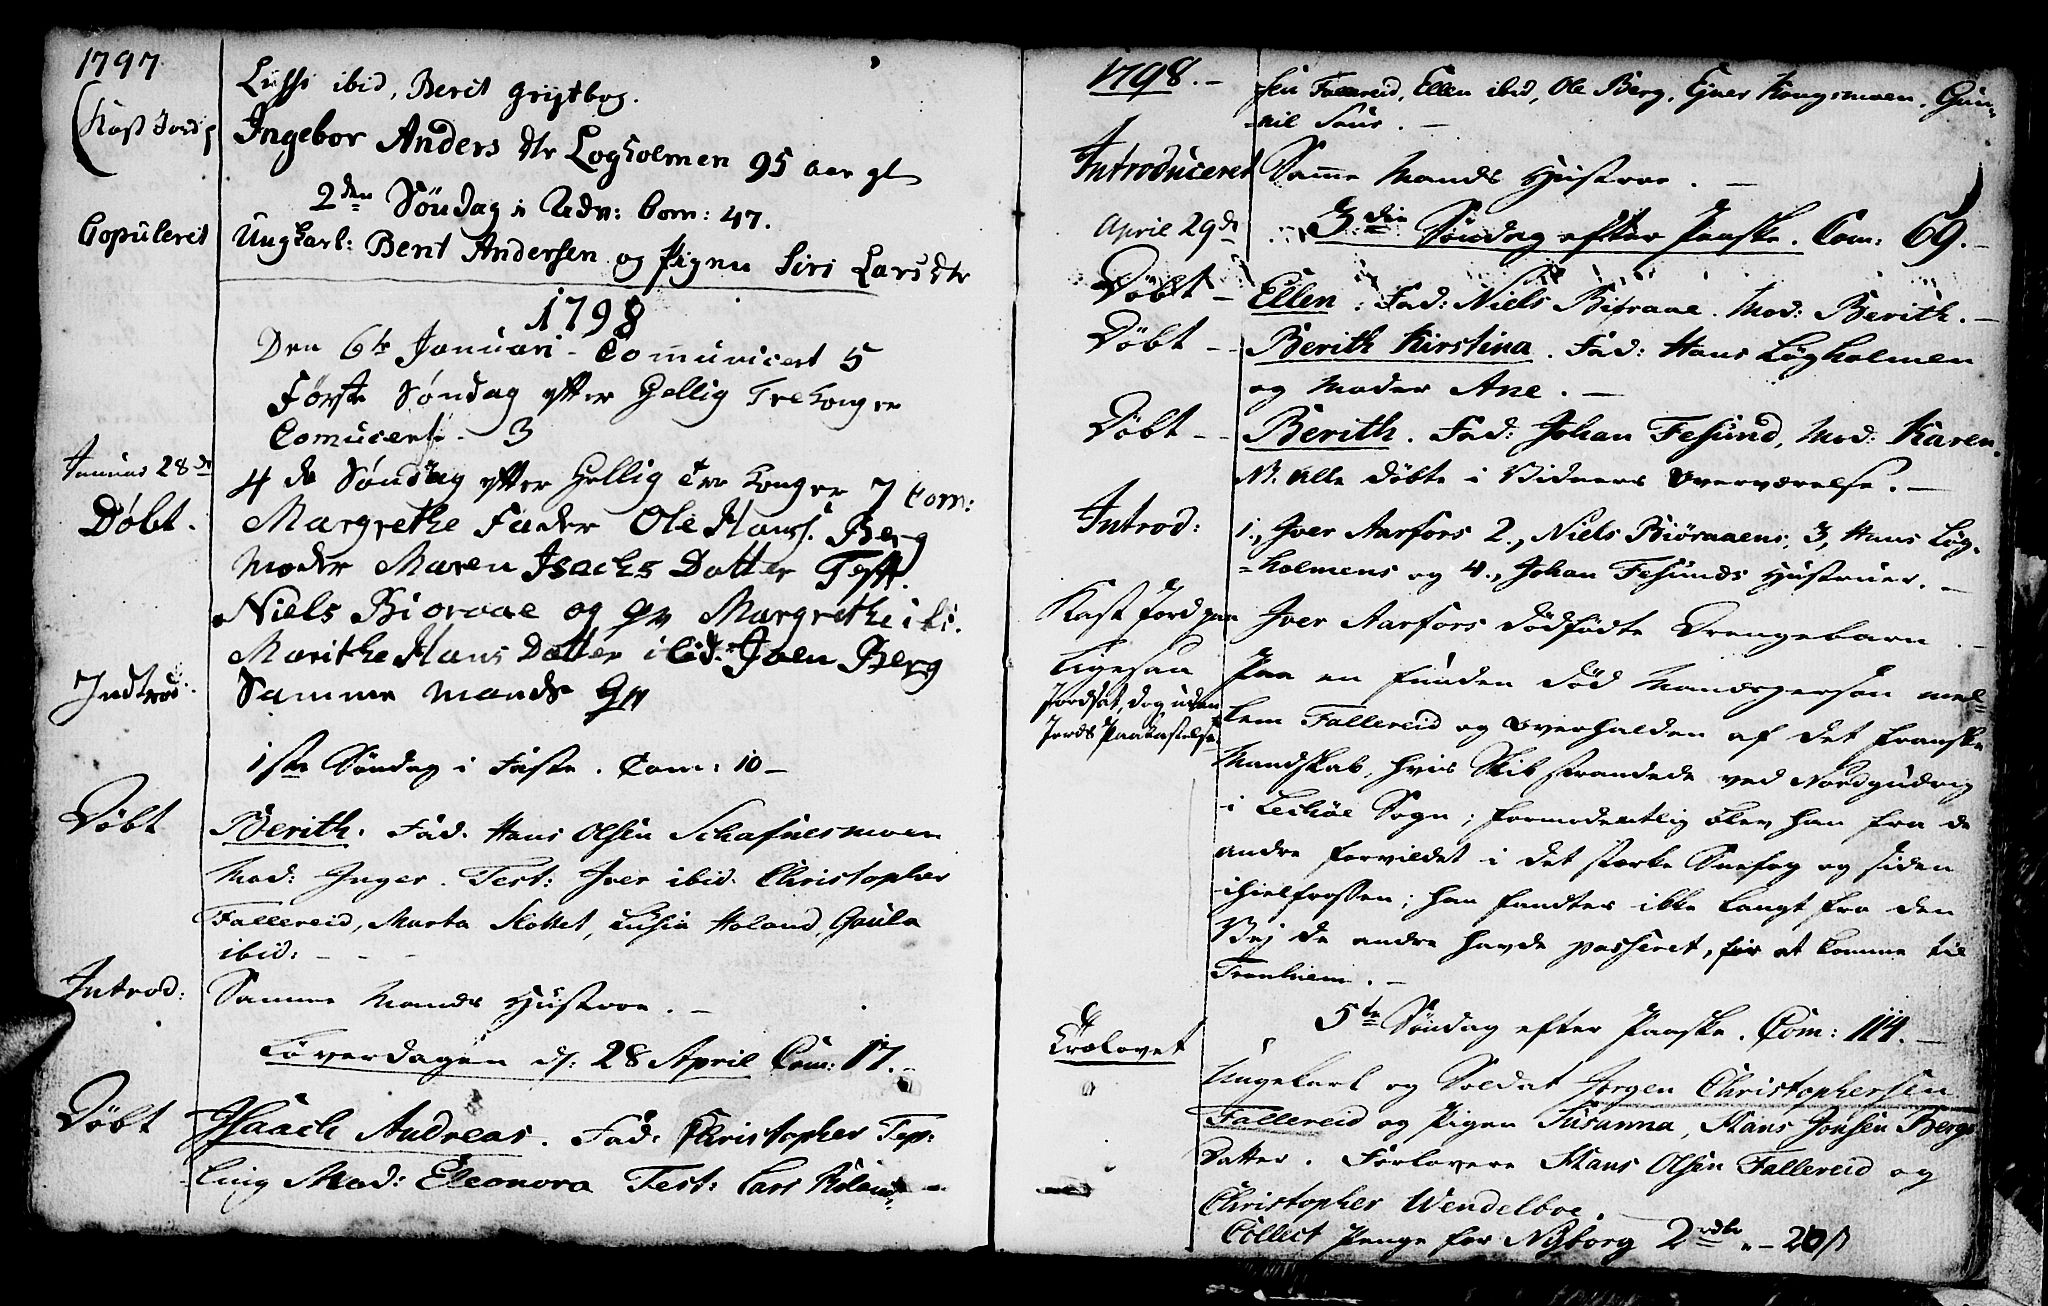 1797
Lussi ibid, Berit Grytbog.
(Kast Jord p
Ingebor Anders dtr Logholmen 95 aar gl
2den Søndag i Adv: Com: 47.
Copuleret
Ungkarl: Berit Andersen og Pigen Siri Larsdtr
1798
Den 6te Januari - Comunicert 5
Første Søndag efter Hellig Trekonger
Comucert - 3
Januar 28de
4de Søndag efter Hellig Tre Konger 7 Com:
Døbt.
Margrethe Fader Ole Hans. Berg
Moder Maren Isachs Datter Test.
Niels Bioraae og Qv Margrethe ibi.
Marithe Hans Datter ibid: Joen Berg
Indtrod:
Samme Mands Qv
1ste Søndag i Faste. Com: 10 -
Døbt
Berith. Fad. Hans Olsen Schafnesmoen
Mod: Inger. Test: Iver ibid. Christopher
Fallereid, Marta Slottet, Lusia Holand, Gaula
ibid: - - -
Introd:
Samme Mands Hustroe. -
Løverdagen d: 28 April Com: 17. -
Døbt
Isaach Andreas. Fad: Christopher Tep-
ling Mod: Eleonora Test: Lars
1798. -
sen Fallereid, Ellen ibid, Ole Berg, Ejner Kongsmoen, Gun-
nil Sous. -
Introduceret
Samme Mands Hustroe. -
April 29de
3die Søndag efter Paaske. Com: 69. -
Døbt -
Ellen. Fad: Niels Biøraae. Mod: Berith. -
Døbt - -
Berith Kirstina. Fad: Hans Løgholmen
og Moder Ane. -
Døbt - -
Berith. Fad: Johan Fesund, Mod: Karen.
N. alle døbte i Vidners Overværelse. -
Introd:
1., Iver Aarfors 2., Niels Biøraaens, 3, Hans Løg-
holmens og 4., Johan Fesunds Hustruer. -
Kast Jord paa
Iver Aarfors dødfødte Drengebarn. -
Ligesaa
Jordsat, dog uden
Jords Paakastelse
Paa en funden død Mandsperson mel-
lem Fallereid og Overhalden af det franske
Mandskab, hvis Skib strandede ved Nordgudvig
i Lechøe Sogn; formodentlig blev han fra de
andre forvildet i det stærke Snefog og siden
ihielfrossen; han fandtes ikke langt fra den
Vej de andre havde passeret, for at komme til
Tronhiem. -
5te Søndag efter Paaske. Com: 114. -
Trolovet
Ungekarl og Soldat Jørgen Christophersen
Fallereid og Pigen Susanna, Hans Jonsen Bergs
Datter. Forlovere Hans Olsen Fallereid og
Christopher Wendelboe. -
Collect Penge for Nyborg 2 rdlr " - 20 s